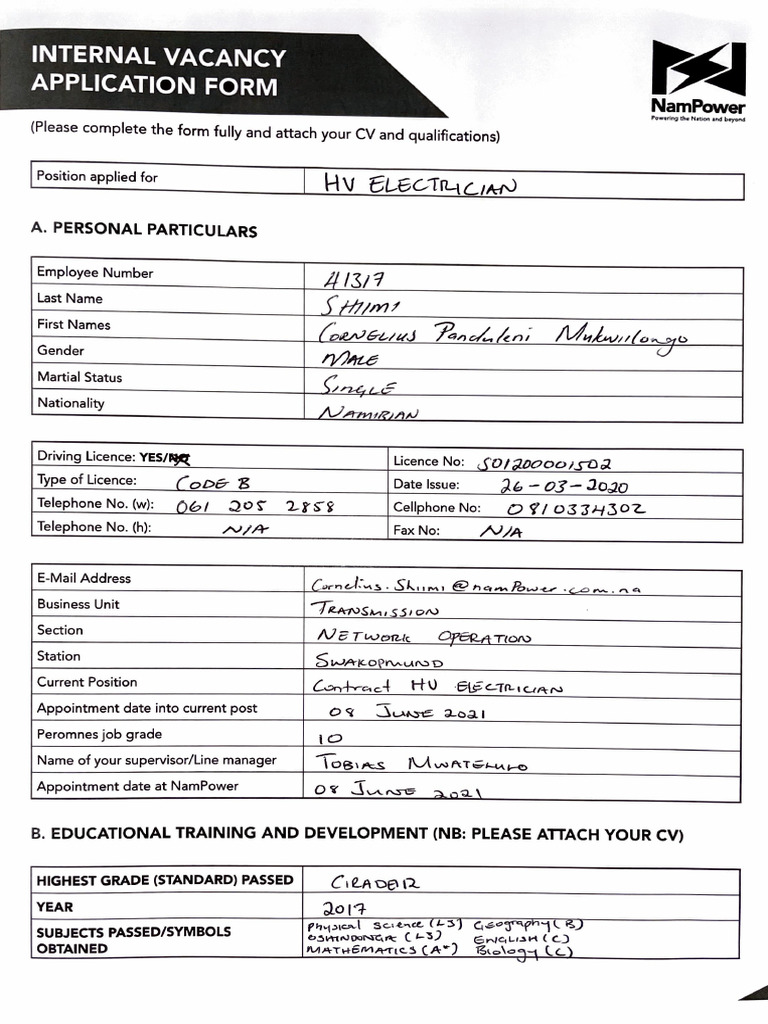 INTERNAL VACANCY
APPLICATION FORM
NamPower
Powering the Nation and beyond
(Please complete the form fully and attach your CV and qualifications)
Position applied for HV ELECTRICIAN
A. PERSONAL PARTICULARS
Employee Number 41317
Last Name SHIIMI
First Names CORNELIUS Panduleni Mukwiilongo
Gender MALE
Martial Status SINGLE
Nationality NAMIBIAN
Driving Licence: YES/NO Licence No: S01200001502
Type of Licence: CODE B Date Issue: 26-03-2020
Telephone No. (w): 061 205 2858 Cellphone No: 0810334302
Telephone No. (h): N/A Fax No: N/A
E-Mail Address Cornelius.Shiimi@namPower.com.na
Business Unit TRANSMISSION
Section NETWORK OPERATION
Station SWAKOPMUND
Current Position Contract HV ELECTRICIAN
Appointment date into current post 08 JUNE 2021
Peromnes job grade 10
Name of your supervisor/Line manager TOBIAS
Appointment date at NamPower 08 JUNE 2021
B. EDUCATIONAL TRAINING AND DEVELOPMENT (NB: PLEASE ATTACH YOUR CV)
HIGHEST GRADE (STANDARD) PASSED GRADE 12
YEAR 2017
SUBJECTS PASSED/SYMBOLS OBTAINED
Physical Science (L3) Geography (B)
OSHINDONGA (L3) ENGLISH (C)
MATHEMATICS (A*) Biology (C)